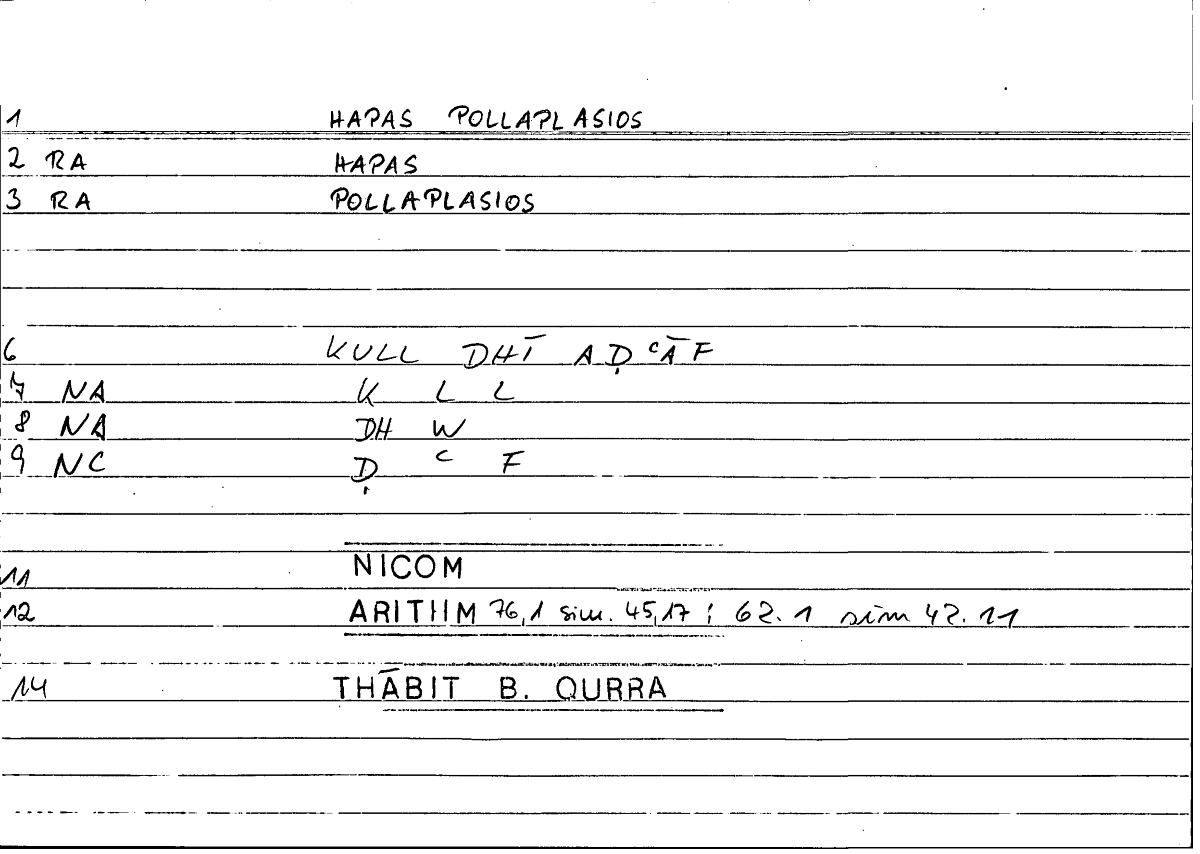 1 HAPAS POLLAPLASIOS
2 RA HAPAS
3 RA POLLAPLASIOS
6 KULL DHĪ AḌ ͨĀF
7 NA K L L
8 NA DH W
9 NC Ḍ ͨ F
11 NICOM
12 ARITHM 76,1 sim. 45,17 ; 62.1 sim 42.11
14 THĀBIT B. QURRA